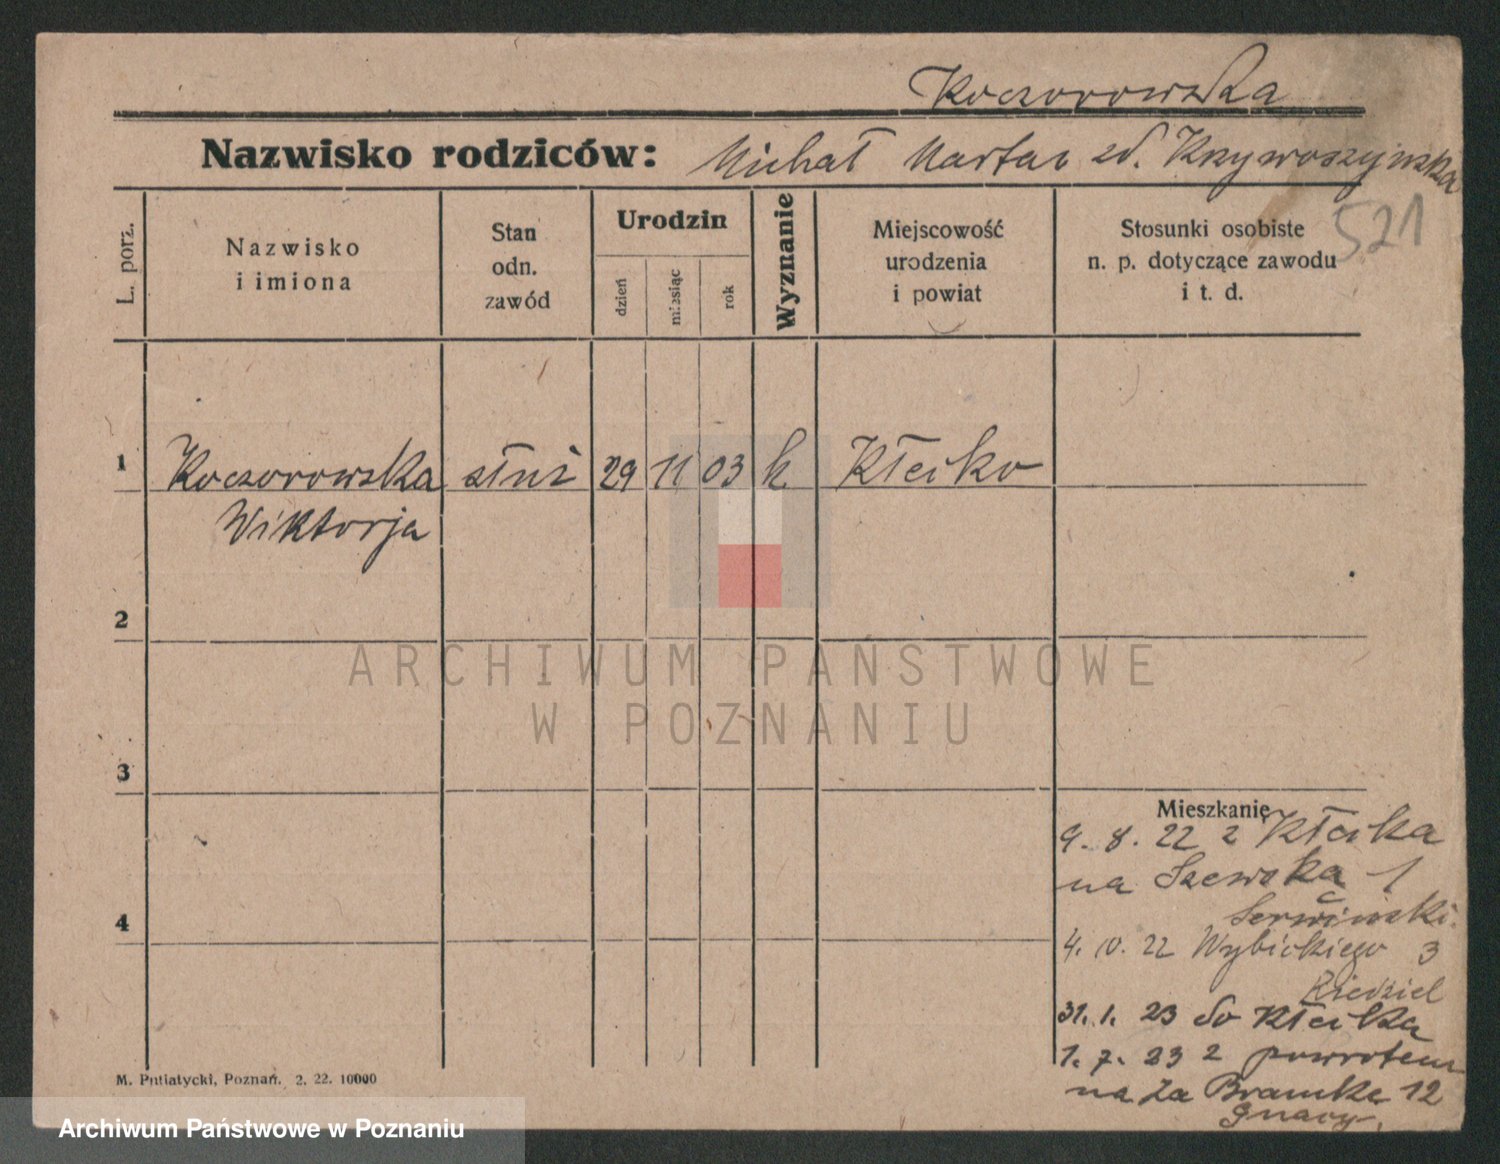 Koczorowska
Nazwisko rodziców: Michał Marta zd. Krzywoszyńska
521
L. porz.
Nazwisko
i imiona
Stan
odn.
zawód
Urodzin
dzień
miesiąc
rok
Wyznanie
Miejscowość
urodzenia
i powiat
Stosunki osobiste
n. p. dotyczące zawodu
i t. d.
1 Koczorowska służ 29 11 03 k Kłecko
Wiktorja
2
ARCHIWUM PAŃSTWOWE
W POZNANIU
3
Mieszkanie
9. 8. 22 z Kłecka
na Szewską 1
Serwiński.
4
4. 10. 22 Wybickiego 3
31. 1. 23 do Kłecka
1. 7. 23 z powrotem
na Za Bramką 12
M. Putiatycki, Poznań. 2. 22. 10000
Archiwum Państwowe w Poznaniu